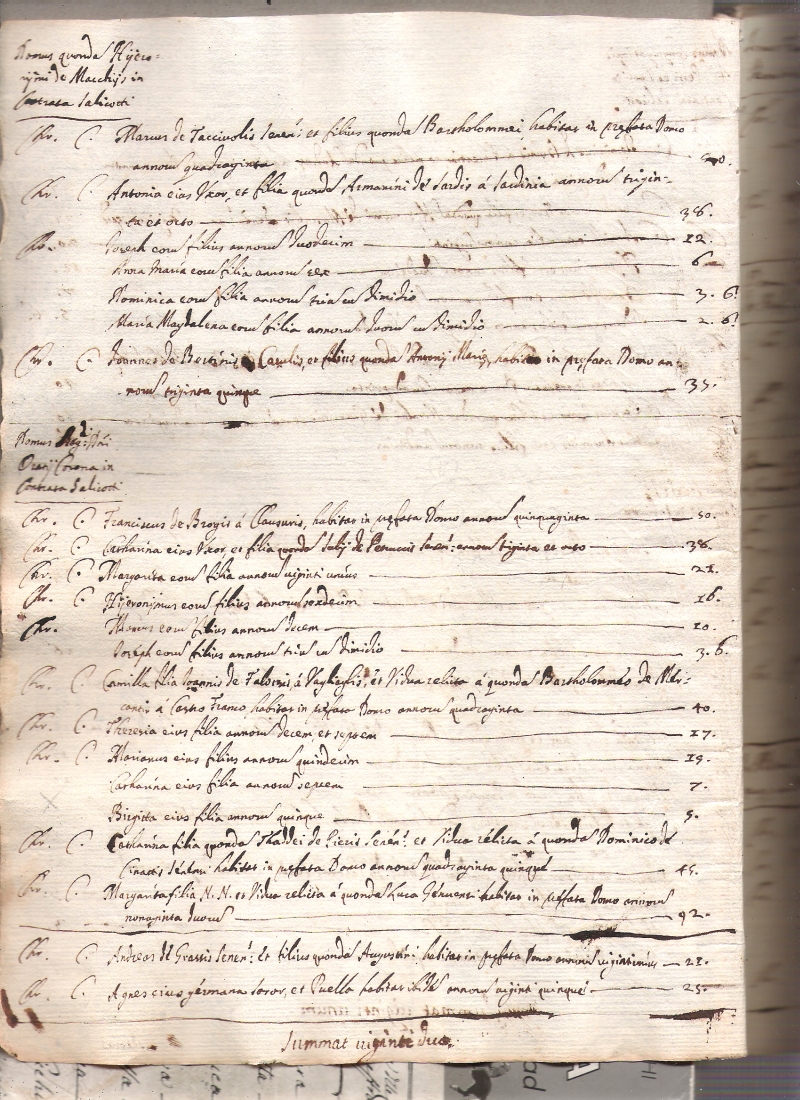 Domus quondã Hÿero-
nÿmi de Macchijs in
Contrata Salicotti
Chr. C. Marcus de Senen: et filius quondã Bartholommei, habitat in pręfata Domo
annorũ quadraginta 40.
Chr. C. Antonia eius Vxor, et filia quondã Armanini de Sardis á Sardinia annorũ trigin-
ta et octo 38.
Chr. Ioseph eorũ filius annorũ duodecim 12
Anna Maria eorũ filia annorũ sex 6
Dominica eorũ filia annorũ triũ cũ dimidio 3. 6.
Maria Magdalena eorũ filia annorũ duorũ cũ dimidio 2. 6.
Chr. C. Ioannes de et filius quondã Antonij Marię, habitat in pręfata Domo an-
norũ triginta quinque 35.
Domus
Corona in
Contrata Salicotti
Chr. C. Franciscus de á Clausuris, habitat in pręfata Domo annorũ quinquaginta 50.
Chr. C. Catharina eius Vxor, et filia quondã de Senen: annorũ triginta et octo 38.
Chr. C. Margarita eorũ filia annorũ uiginti unius 21.
Chr. C. Hÿeronÿmus eorũ filius annorũ sexdecim 16.
Chr. Marcus eorũ filius annorũ decem 10.
Ioseph eorũ filius annorũ triũ cũ dimidio 3. 6.
Chr. C. Camilla filia Ioannis de á et Vidua relicta á quondã Bartholomeo de Mer-
cantis á Castro Franco habitat in pręfata Domo annorũ quadraginta 40.
Chr. C. Theresia eius filia annorũ decem et septem 17.
Chr. C. Marianus eius filius annorũ quindecim 15.
Catharina eius filia annorũ septem 7.
Birgitta eius filia annorũ quinque 5.
Chr. C. Catharina filia quondã Thaddei de Senen: et Vidua relicta á quondã Dominico de
Senen: habitat in pręfata Domo annorũ quadraginta quinque 45.
Chr. C. Margarita filia N. N. et Vidua relicta á quondã Luca habitat in pręfata Domo annorũ
nonaginta duorũ 92.
Chr. C. Andreas de Grassis Senen: Et filius quondã Augustini habitat in pręfata Domo annorũ uiginti unius 21.
Chr. C. Agnes eius germana soror, et Puella habitat annorũ uiginti quinque 25.
Summat uiginti duo.